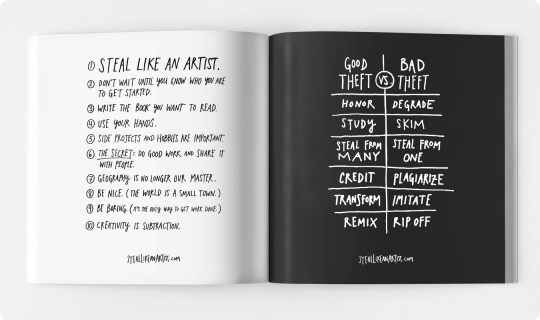 ① STEAL LIKE AN ARTIST.
② DON'T WAIT UNTIL YOU KNOW WHO YOU ARE
TO GET STARTED.
③ WRITE THE BOOK YOU WANT TO READ.
④ USE YOUR HANDS.
⑤ SIDE PROJECTS AND HOBBIES ARE IMPORTANT
⑥ THE SECRET: DO GOOD WORK AND SHARE IT
WITH PEOPLE.
⑦ GEOGRAPHY IS NO LONGER OUR MASTER.
⑧ BE NICE. (THE WORLD IS A SMALL TOWN.)
⑨ BE BORING. (IT'S THE ONLY WAY TO GET WORK DONE.)
⑩ CREATIVITY IS SUBTRACTION.
STEALLIKEANARTIST.com
GOOD THEFT VS BAD THEFT
HONOR DEGRADE
STUDY SKIM
STEAL FROM MANY STEAL FROM ONE
CREDIT PLAGIARIZE
TRANSFORM IMITATE
REMIX RIP OFF
STEALLIKEANARTIST.com